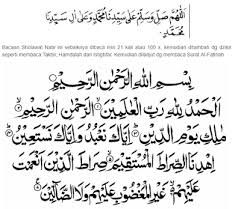 اللَّهُمَّ صَلِّ وَسَلِّمْ عَلَى سَيِّدِنَا مُحَمَّدٍ وَعَلَى آلِ سَيِّدِنَا
مُحَمَّدٍ
Bacaan Sholawat Nabi ini sebaiknya dibaca min 21 kali atau 100 x, kemudian ditambah dg dzikir
seperti membaca Takbir, Hamdalah dan Istighfar. Kemudian dilanjut dg membaca Surat Al-Fatihah
بِسْمِ اللهِ الرَّحْمٰنِ الرَّحِيْمِ
اَلْحَمْدُ لِلّٰهِ رَبِّ الْعٰلَمِيْنَ ۝ الرَّحْمٰنِ الرَّحِيْمِ ۝
مٰلِكِ يَوْمِ الدِّيْنِ ۝ اِيَّاكَ نَعْبُدُ وَاِيَّاكَ نَسْتَعِيْنُ ۝
اِهْدِنَا الصِّرَاطَ الْمُسْتَقِيْمَ ۝ صِرَاطَ الَّذِيْنَ اَنْعَمْتَ
عَلَيْهِمْ ەۙ غَيْرِ الْمَغْضُوْبِ عَلَيْهِمْ وَلَا الضَّآلِّيْنَ ۝